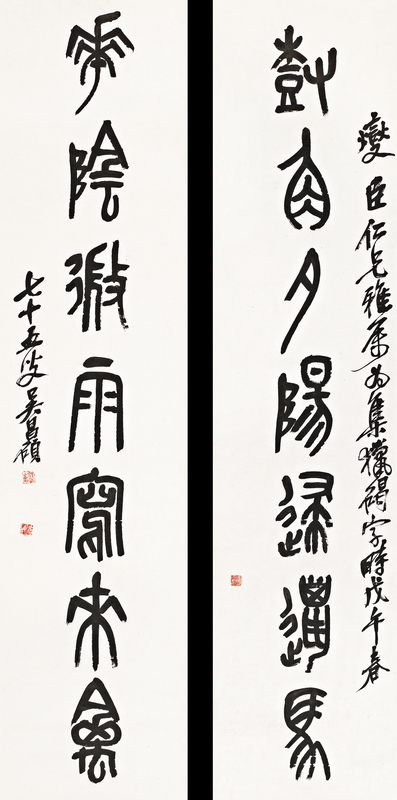 樹夕陽邋馬
燮臣仁兄雅屬為集獵碣字時戊午春
華陰微雨寫來禽
七十五叟吳昌碩